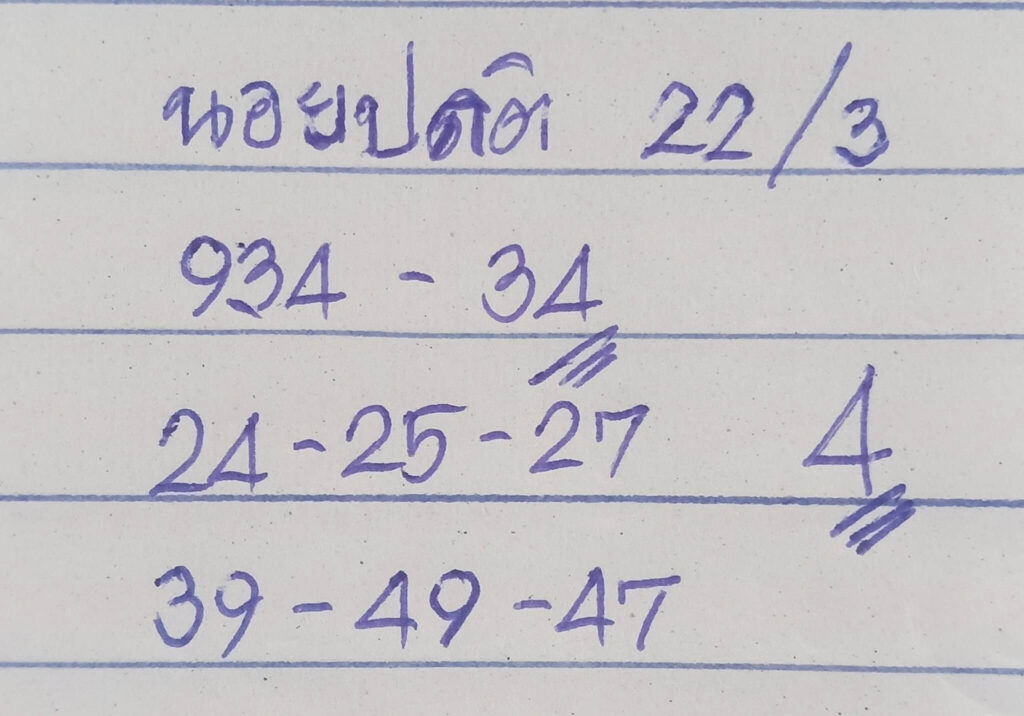 นอยปกติ 22/3
934 - 34
24-25-27 4
39-49-47